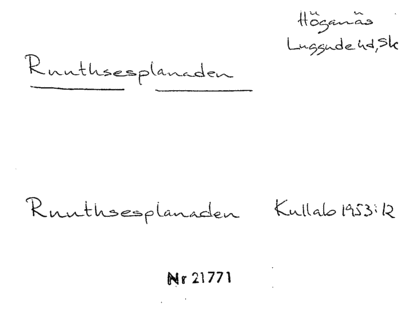 Höganäs
Luggude hd, Sk
Ruuthsesplanaden
Ruuthsesplanaden Kullab 1953:12
Nr 21771